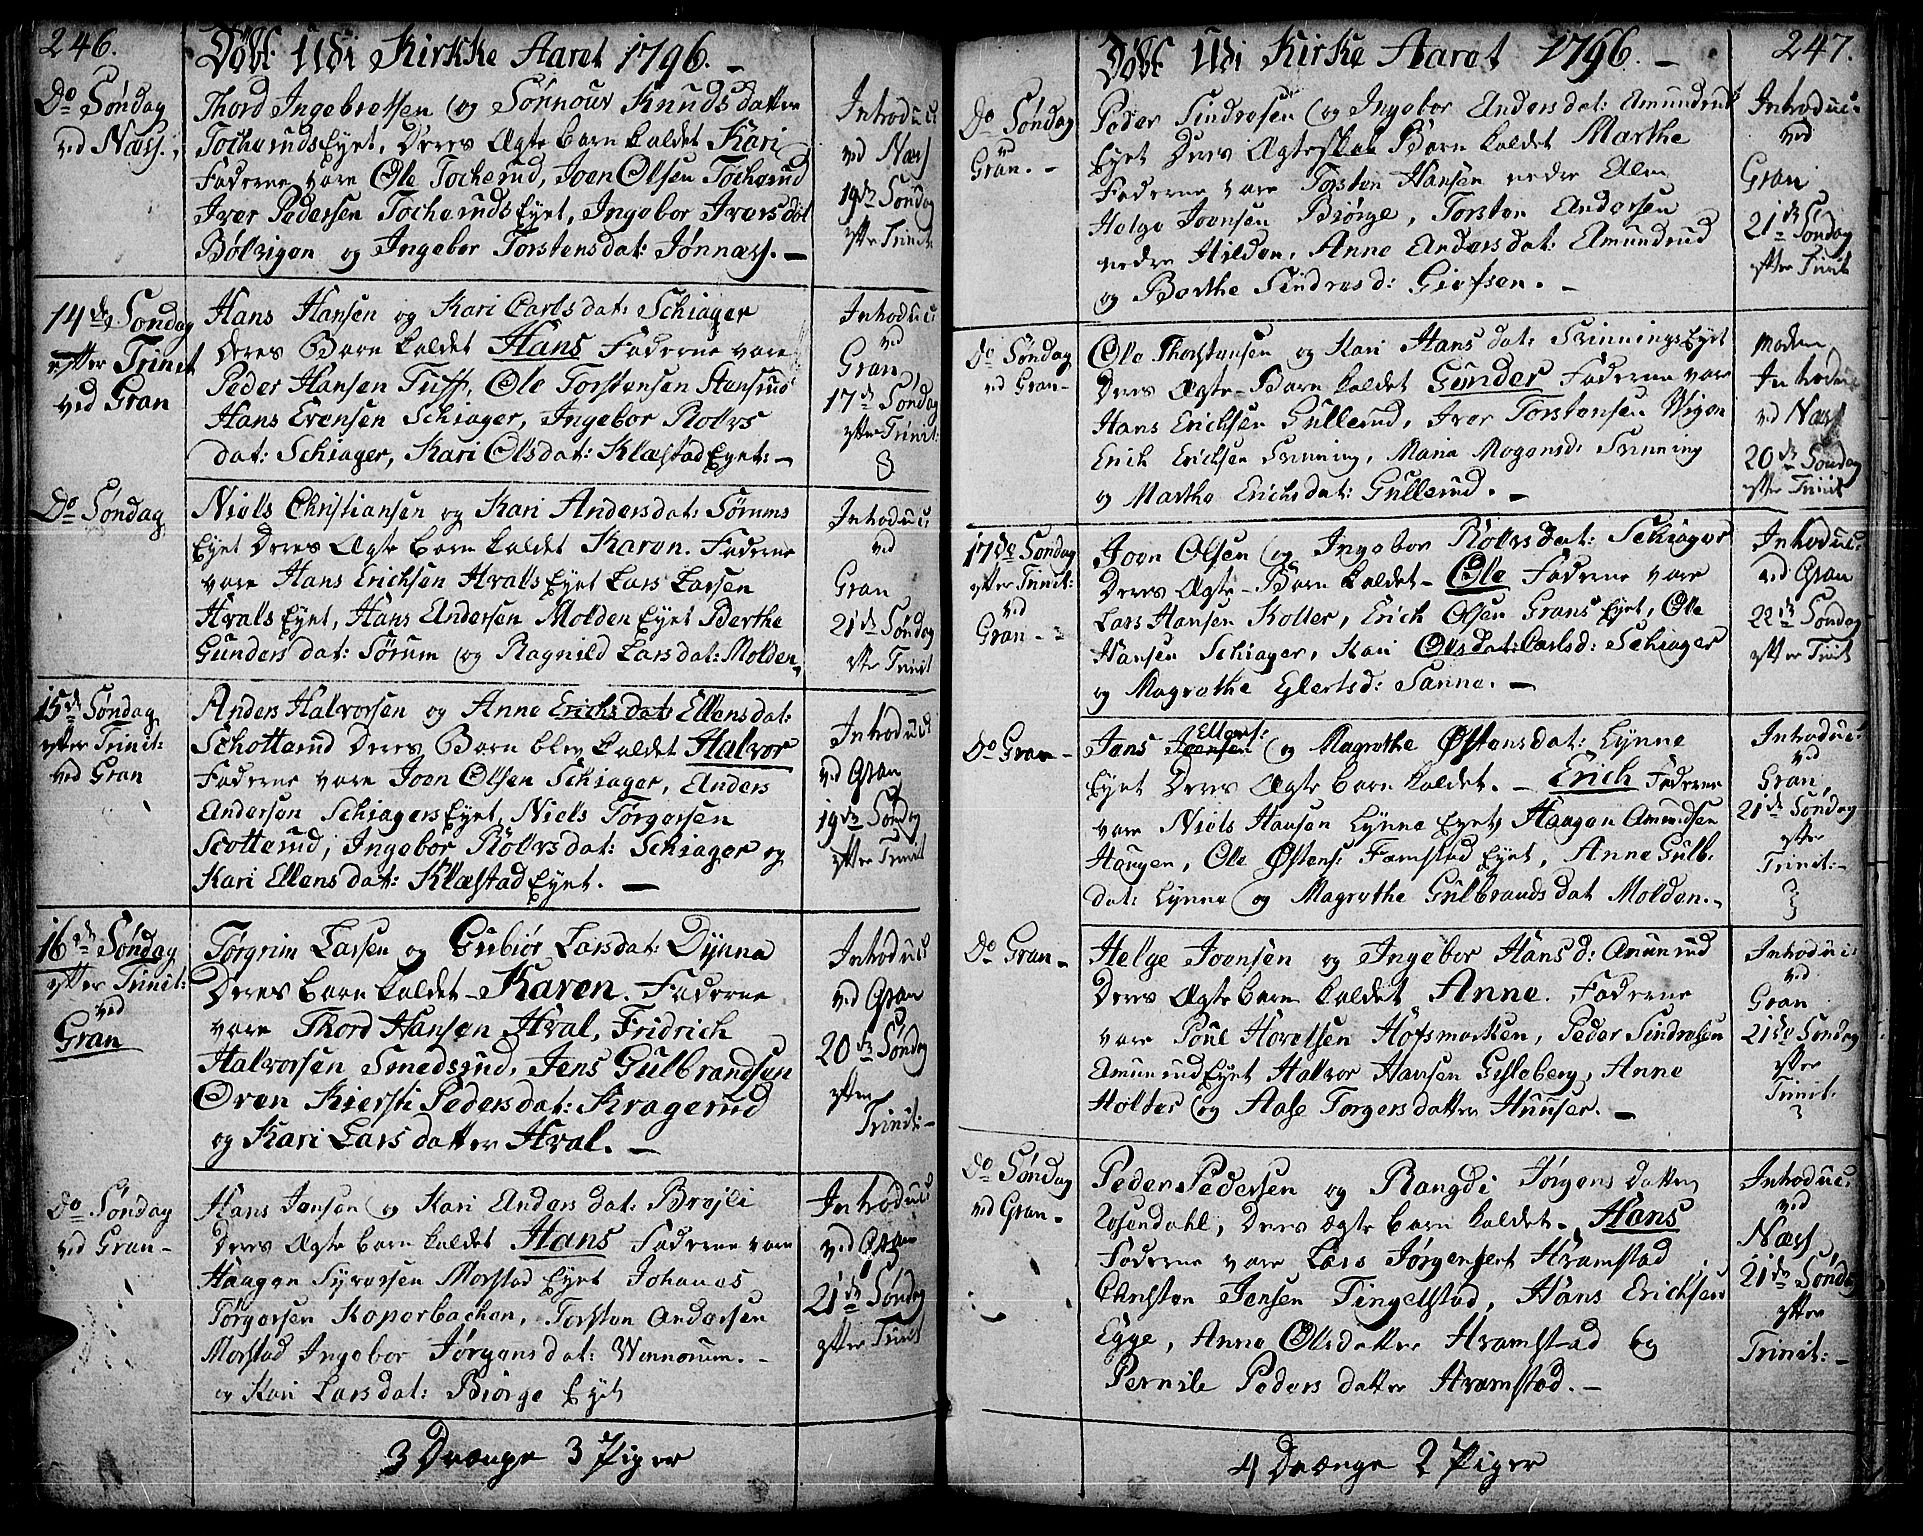 246.
Döbt Udi Kirkke Aaret 1796. –
Do Søndag
ved Næss.
Thord Ingebretsen og Sönnouv Knudsdatter
TocherudsEyet, Deres Ægte barn kaldet Kari
Faderne vare Ole Tocherud, Joen Olsen Tocherud
Iver Pedersen TocherudsEyet, Ingebor Iversdat
Bölvigen og Ingebor Torstensdat: Jönnæss. –
Introduc:
ved Næss
19de Søndag
efter Trinit:
14de Søndag
efter Trinit
ved Gran
Hans Hansen og Kari Carlsdat: Schiager
Deres Barn kaldet Hans Faderne vare
Peder Hansen Tuff, Ole Torstensen Hansrud
Hans Evensen Schiager, Ingebor Rolvs
dat: Schiager, Kari Olsdat: KlæstadEyet: –
Introduc:
ved
Gran
17de Søndag
efter Trinit:
Do Søndag
Niels Christiansen og Kari Andersdat: Sörums
Eyet Deres Ægte barn kaldet Karen. Faderne
vare Hans Erichsen HvalsEyet Lars Larsen
HvalsEyet, Hans Andersen Molden Eyet Berthe
Gundersdat: Sørum og Ragnild Larsdat: Molden
Introduc:
ved
Gran
21de Søndag
efter Trinit
15de Søndag
efter Trinit:
ved Gran
Anders Halvorsen og Anne Erichsdat: Ellensdat:
Schotterud Deres Barn blev kaldet Halvor
Faderne vare Joen Olsen Schiager, Anders
Andersen SchiagersEyet, Niels Torgersen
Scotterud, Ingebor Rölvsdat: Schiager og
Kari Ellensdatt: KlæstadEyet. –
Introduc:
ved Gran
19de Søndag
efter Trinit
16de Søndag
efter Trinit:
ved
Gran
Torgrim Larsen og Gubiör Larsdat: Dynna
Deres barn kaldet – Karen. Faderne
vare Thord Hansen Hval, Fridrich
Halvorsen Smedsrud, Jens Gulbrandsen
Oren Kiersti Pedersdat: Kragerud
og Kari Larsdatter Hval. –
Introduc:
ved Gran
20de Søndag
efter
Trinit: –
Do Søndag
ved Gran –
Hans Jensen og Kari Andersdat: Bröjli
Deres Ægte barn kaldet Hans Faderne vare
Haagen Syversen Morstad Eyet Johanes
Torgersen Koperbachen, Torsten Andersen
Morstad Ingebor Jørgensdat: Wennorum. –
og Kari Larsdat: Biörge Eyet
Introduc:
ved Gran
21de Søndag
efter Trinit
3 Drænge 3 Piger
Döbt Udi Kirke Aaret 1796. –
247.
Do Søndag
Gran. –
Peder Sindresen og Ingebor Andersdat: Amundruds
Eyet Deres Ægteskab Barn kaldet Marthe
Faderne vare Torsten Hansen nedre Alm
Helge Joensen Biørge, Torsten Andersen
nedre Hilden, Anne Andersdat: Amundrud
og Berthe Sindresd: Giefsen. –
Introduc:
ved
Gran
21de Søndag
efter Trinit
Do Søndag
ved Gran –
Ole Thorstensen og Kari Hansdat: SvinningsEyet
Deres Ægte-Barn kaldet Gunder Faderne vare
Hans Erichsen Gullerud, Iver Torstensen Wigen
Erich Erichsen Svinning, Maria Mogensd: Svinning
og Marthe Erichsdat: Gullerud. –
Moderen
Introduc
ved Næss
20de Søndag
efter Trinit
17de Søndag
efter Trinit:
ved
Gran –
Joen Olsen og Ingebor Rölvsdat: Schiager
Deres Ægte-Barn kaldet – Ole Faderne vare
Lars Hansen Kolter, Erich Olsen GransEyet, Ole
Hansen Schiager, Kari Olsdat: Carlsd: Schiager
og Magrethe Eylertsd: Sanne. –
Introduc:
ved Gran
22de Søndag
efter Trinit
Do Gran –
Jens Joensen Ellens: og Magrethe Østensdat: Lynne
Eyet Deres Ægte barn kaldet. – Erich Faderne
vare Niels Hansen Lynne Eyet, Haagen Amundsen
Haugen, Ole Østens: Famstad Eyet, Anne Gulb.
dat: Lynne og Magrethe Gulbrandsdat Molden. –
Introduc:
ved
Gran,
21de Søndag
efter
Trinit: –
Do Gran –
Helge Joensen og Ingebor Hansd: Amunrud
Deres Ægte barn kaldet Anne. Faderne
vare Poul Hovelsen Hofsmarken, Peder Sindresen
AmunrudEyet Halvor Hansen Gisleberg, Anne
Holter og Aase Torgersdatter Huuser. –
Introduc:
ved
Gran
21de Søndag
efter
Trinit.
Do Søndag
ved Gran –
Peder Pedersen og Rangdi Jørgensdatter
Rosendahl, Deres ægte barn kaldet – Hans
Faderne vare Lars Jørgensen Hvamstad
Christen Jensen Tingelstad, Hans Erichsen
Egge, Anne Olsdatter Hvamstad og
Pernile Pedersdatter Hvamstad. –
Introduc:
ved
Næss
21de Søndag
efter
Trinit: –
4 Drænge 2 Piger